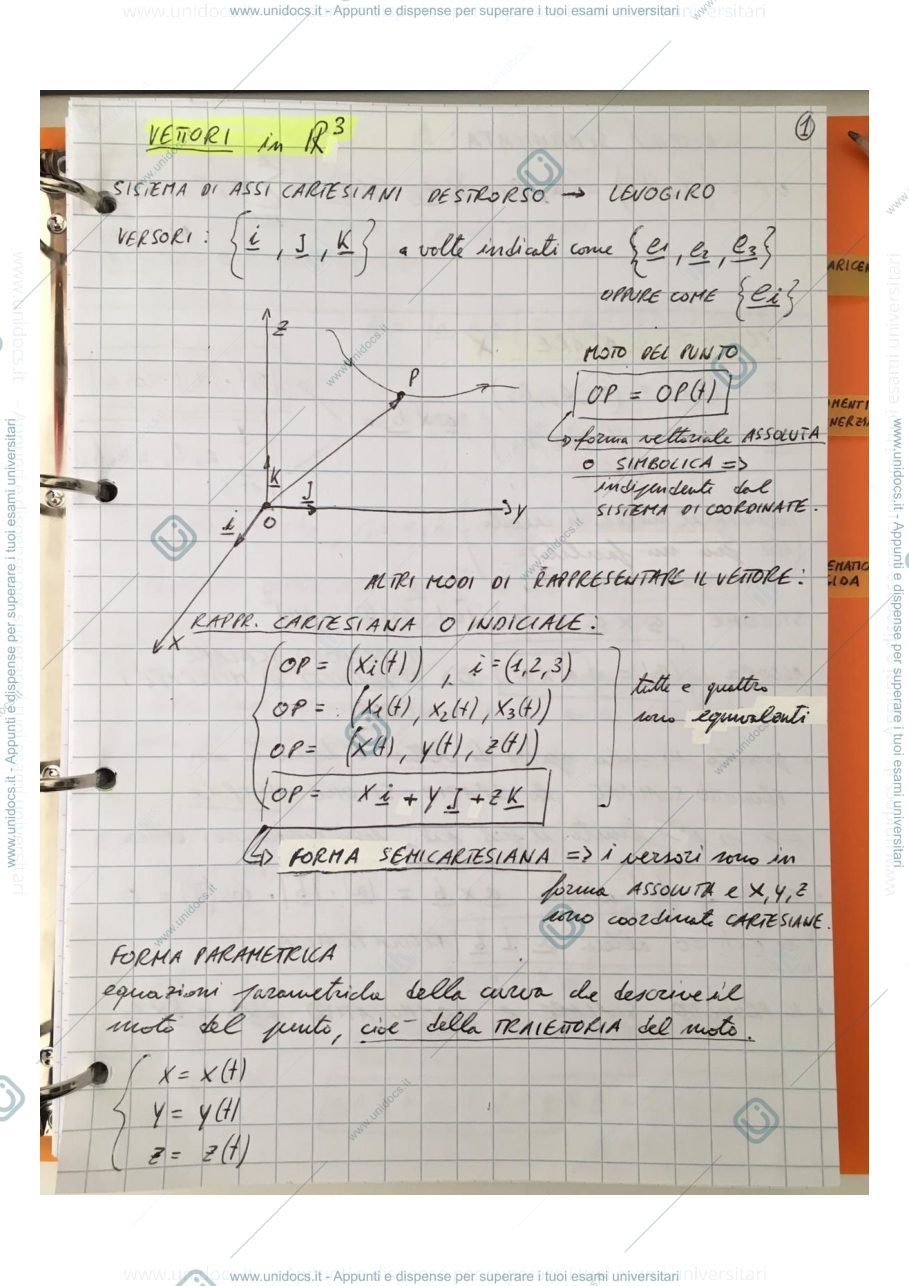 www.unidocs.it - Appunti e dispense per superare i tuoi esami universitari
VETTORI in R³
1
SISTEMA DI ASSI CARTESIANI DESTRORSO → LEVOGIRO
VERSORI: {i, J, K} a volte indicati come {e1, e2, e3}
OPPURE COME {ei}
Z
P
K
J
O
i
Y
X
MOTO DEL PUNTO
OP = OP(t)
↳ forma vettoriale ASSOLUTA
O SIMBOLICA =>
indipendente dal
SISTEMA DI COORDINATE.
ALTRI MODI DI RAPPRESENTARE IL VETTORE:
RAPPR. CARTESIANA O INDICIALE:
OP = (Xi(t)), i = (1,2,3)
OP = (X1(t), X2(t), X3(t))
OP = (X(t), y(t), z(t))
OP = X i + Y J + Z K
tutte e quattro
sono equivalenti
↳ FORMA SEMICARTESIANA => i versori sono in
forma ASSOLUTA e X, Y, Z
sono coordinate CARTESIANE.
FORMA PARAMETRICA
equazioni parametriche della curva che descrive il
moto del punto, cioè della TRAIETTORIA del moto.
X = X(t)
Y = Y(t)
Z = Z(t)
NERZIA
www.unidocs.it - Appunti e dispense per superare i tuoi esami universitari